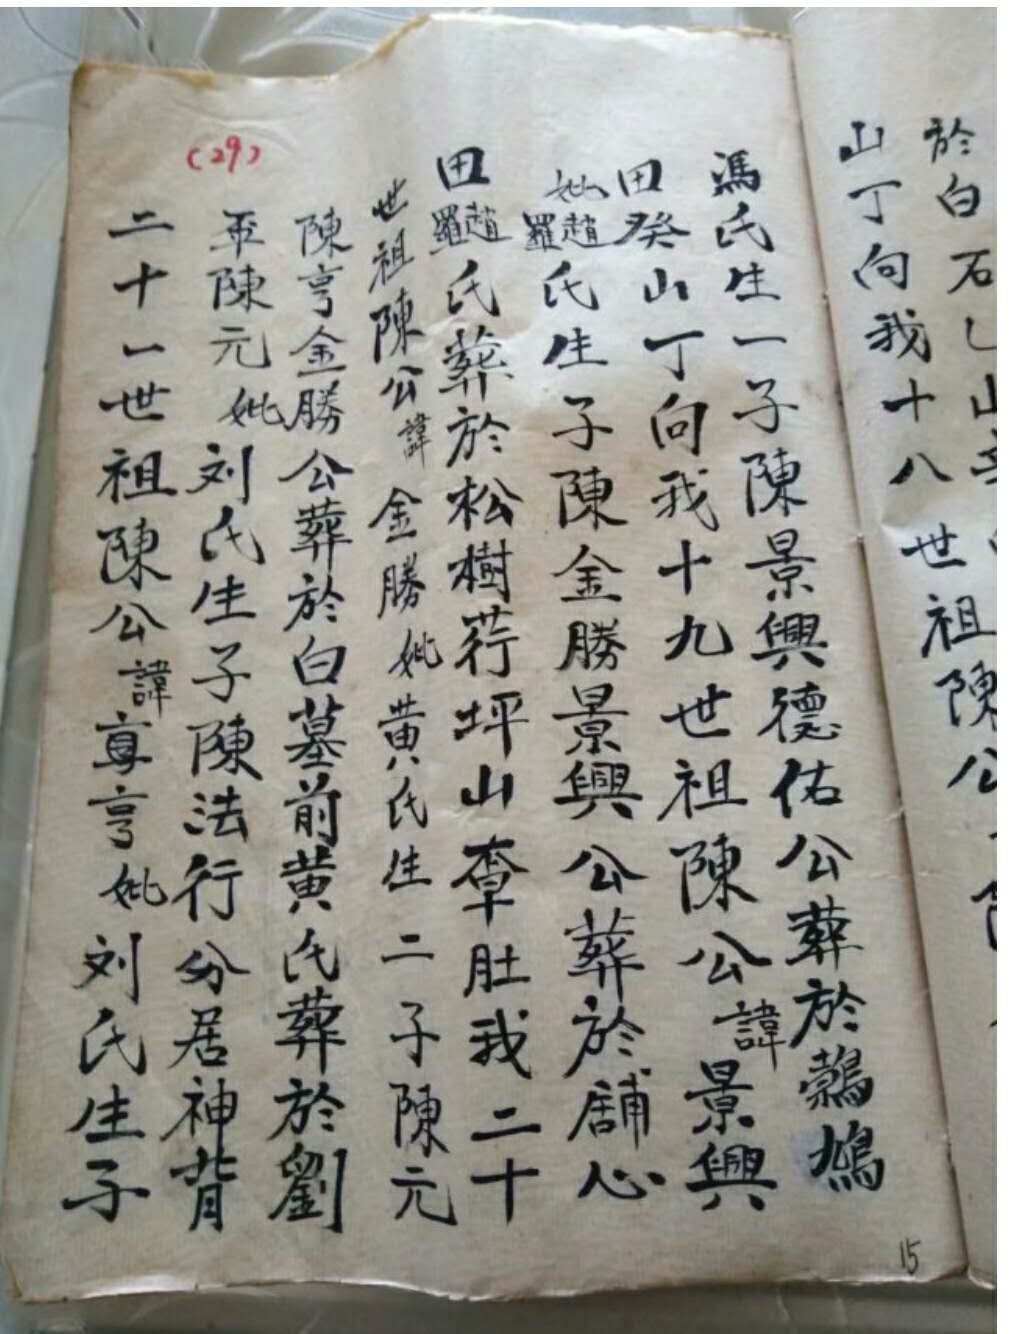 於白石乚山辛
山丁向我十八世祖陳公
馮氏生一子陳景興德佑公葬於鷯鳩
田癸山丁向我十九世祖陳公諱景興
妣趙羅氏生子陳金勝景興公葬於舖心
田趙羅氏葬於松樹荇坪山牽肚我二十
世祖陳公諱金勝妣黄氏生二子陳元
陳亨金勝公葬於白墓前黄氏葬於劉
平陳元妣刘氏生子陳法行分居神背
二十一世祖陳公諱尊亨妣刘氏生子
(29)
15